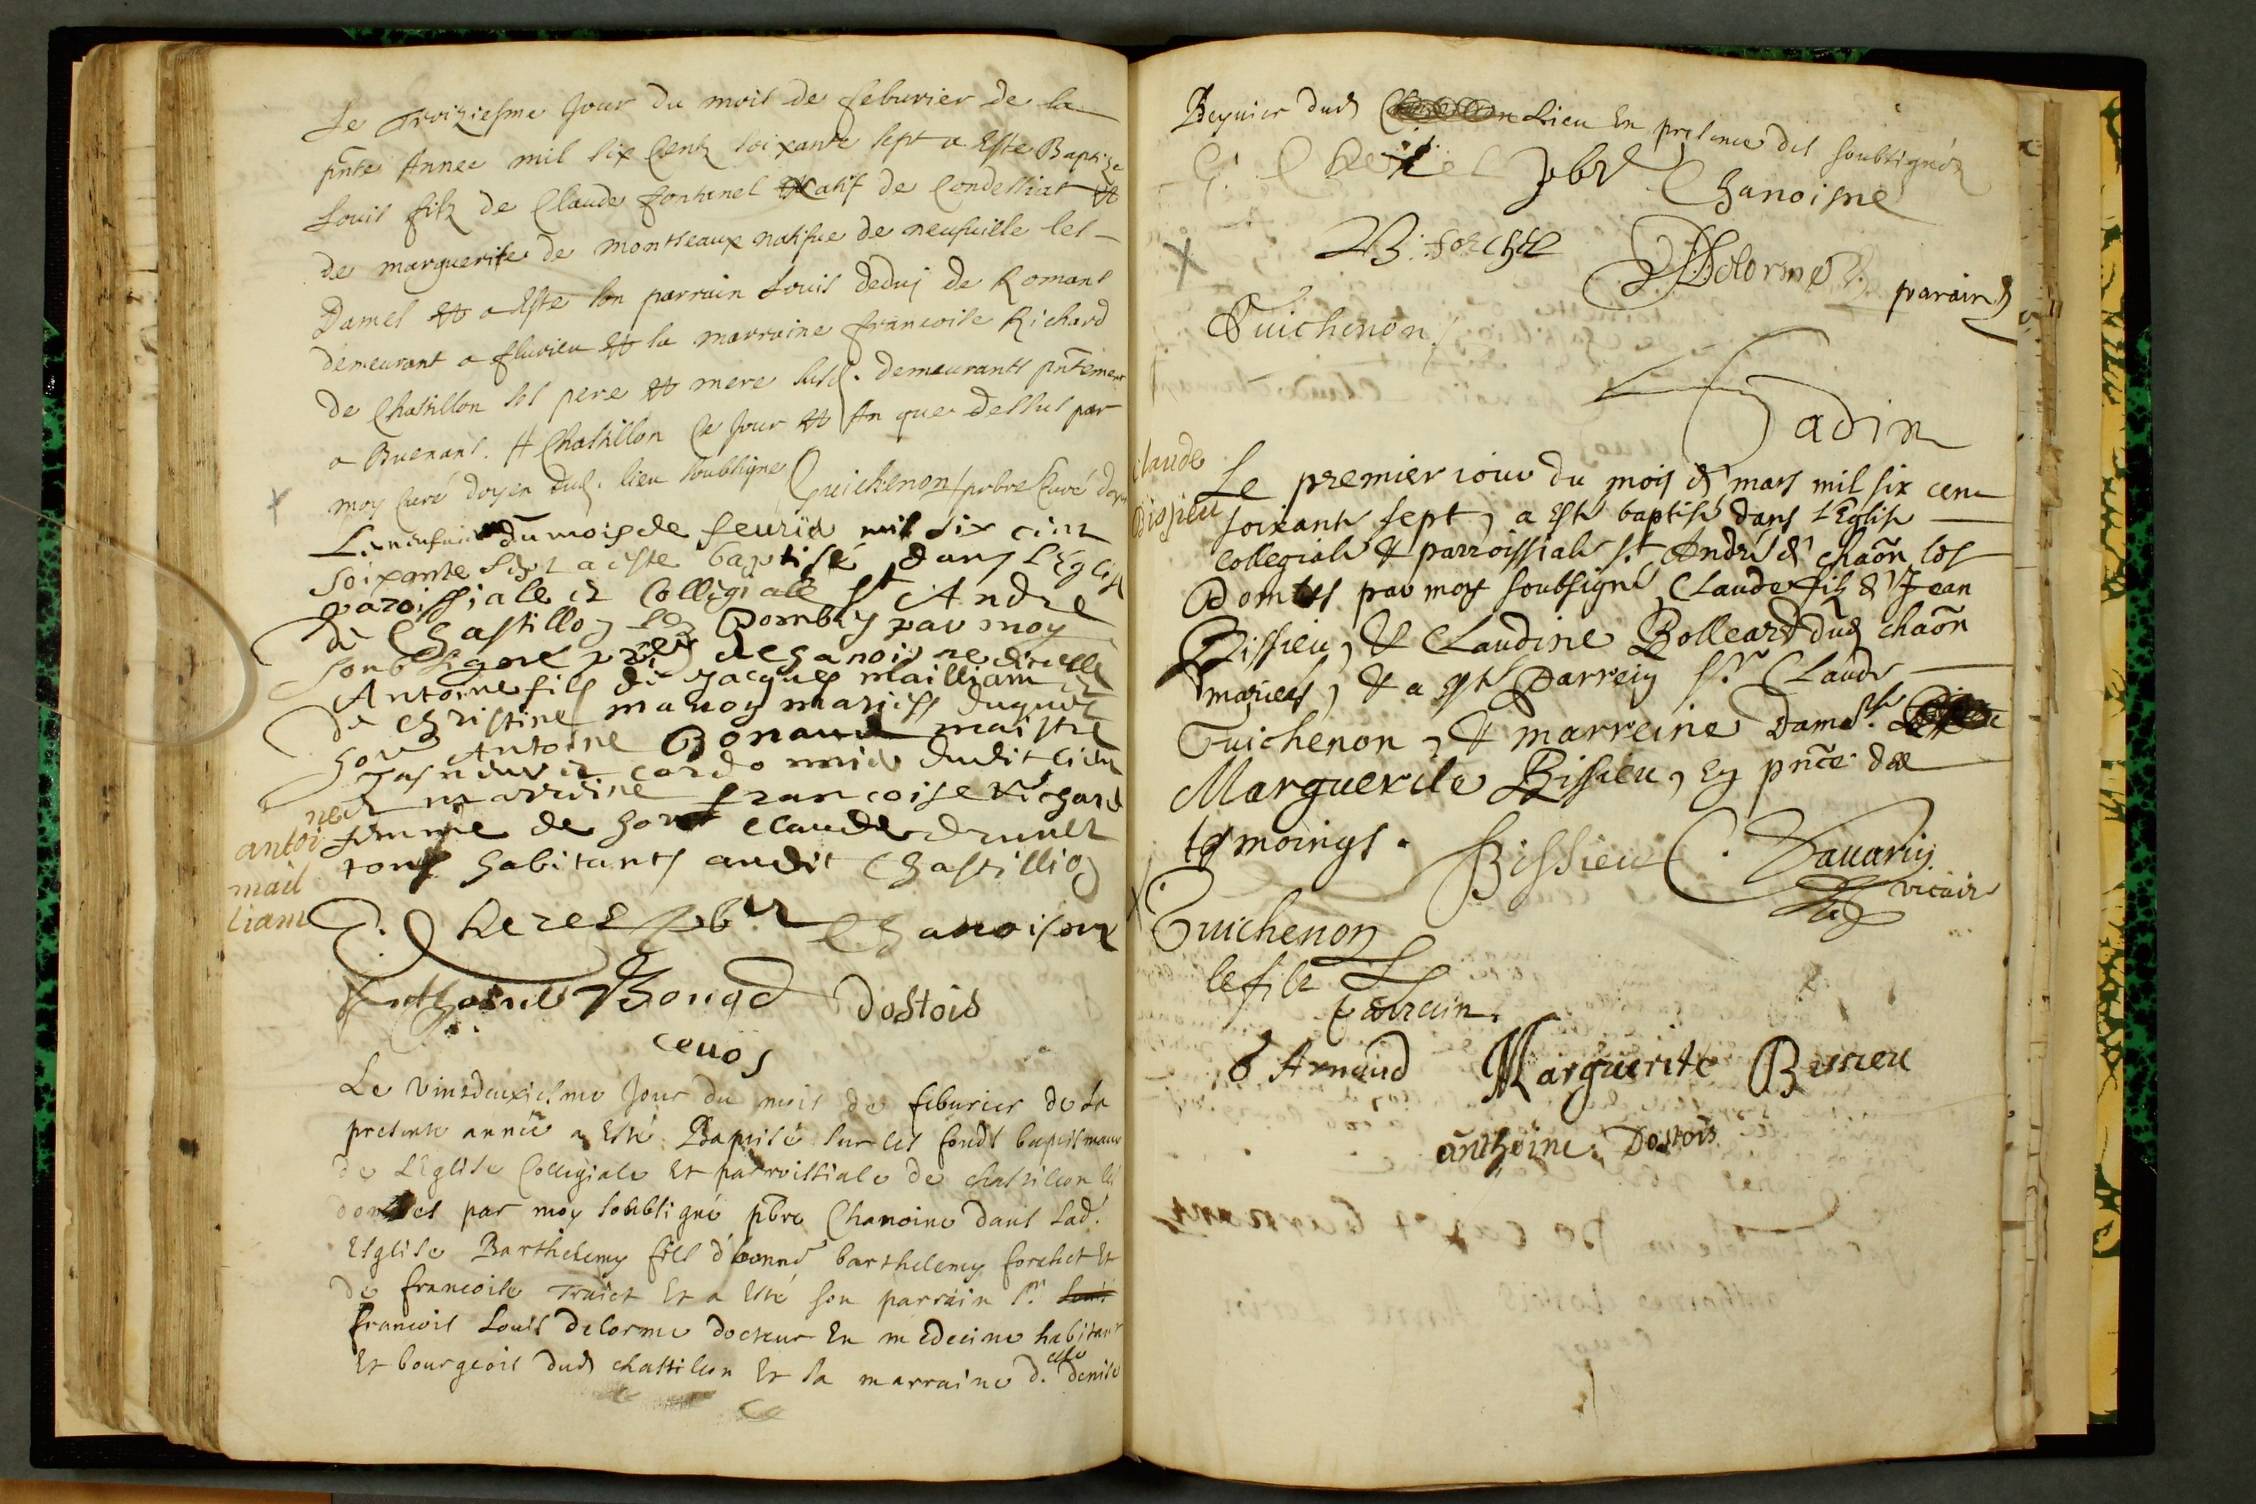 Le Troiziesme Jour du mois de feburier de la
pnte Annee mil six Centz soixante sept a Este Baptize
Louis filz de Claude fontenel Natif de Condessiat et
de marguerite de montseaux natifue de neufuille les
Dames et a Este son parrain Louis deduj de Romans
demeurant a fluvieu et la marraine francoise Richard
de Chatillon ses pere et mere susd. demeurants pntement
a Buenans. A Chatillon Ce Jour et An que dessus par
moy Curé doyen dud. lieu soubsigne Guichenon prbre Curé doyen
du mois de feurié mil six cint
soixante sept a este baptisé dans l'Eglise
paroissiale et Collegiale st Andre
de Chastillon les Dombes par moy
soubsigne chanoisne dicelle
Antoine fils de Jacques mailliam et
de christine manon maries
hon Antoine Bonaud maistre
cordonnié dudit lieu
et marreine francoise Richard
femme de hon Claude drunet
tous habitants audit Chastillion
antoi
ne
mail
liam
C. Cherel pbr Chanoisne
Anthoine Bonad Dostois
cenos
Le vintdeuxiesme Jour du mois de feburier de la
presente année a Esté Baptisé sur les fonds baptismaux
de L'Eglise Collegiale et parroissiale de chastillon les
dombes par moy soubsigné pbre Chanoine dans lad.
Esglise Barthelemy fils d'honne barthelemy forchet et
de francoise Traict et a esté son parrain Sr.
francois Louis delorme docteur En medecine habitant
Et bourgeois dud chastillon Et la marraine d.elle denise
Beynier dud Lieu En presence des soubsignéz
C. Cherel pbr Chanoisne
B. forchet
Delorme parain
Guichenon
Gadin
Claude
Bissieu
Le premier iour du mois de mars mil six cent
soixante sept, a este baptisé dans l'Eglise
Collegiale & parroissiale St. André de chaōn les
Dombes par moy soubsigné, Claude fils de Jean
Bissieu, & Claudine Bolleard dud chaōn
mariers, & a este Parrein sr. Claude
Guichenon, & marreine Damelle.
Marguerite Bissieu, en pnce de
temoings. Bissieu C. Sauarin
vicaire
Guichenon
le fils
parrain.
Arnaud Marguerite Bissieu
anthoine Dostois